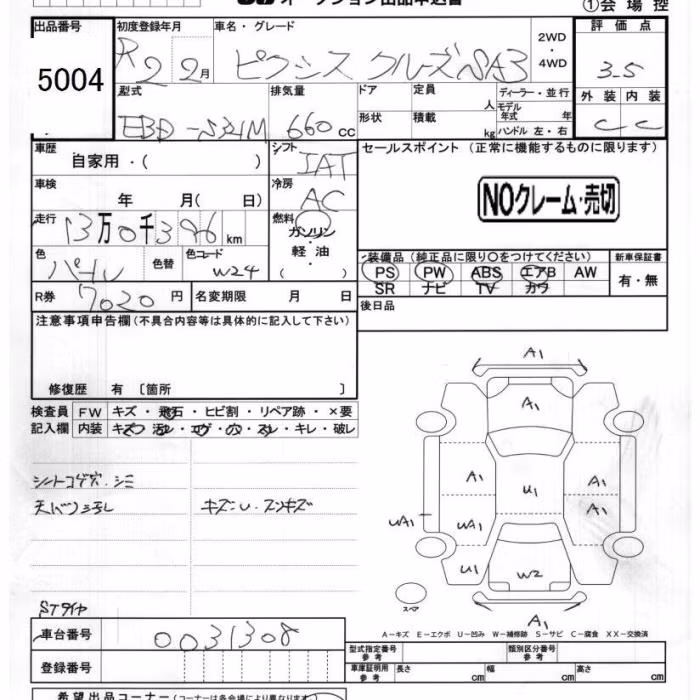 オークション出品申込書
①会場控
出品番号 5004
初度登録年月 R2 2月
車名・グレード ピクシス クルーズSAⅢ
2WD・4WD
評価点 3.5
外装 内装
C C
型式 EBD-S321M
排気量 660cc
ドア 定員 人
形状 積載 kg
ディーラー・並行
モデル年式 年
ハンドル 左・右
車歴 自家用・( )
シフト IAT
セールスポイント (正常に機能するものに限ります)
NOクレーム・売切
車検 年 月( 日)
冷房 AC
走行 13万0千396km
燃料 ガソリン・軽油 ( )
色 パール 色替 色コード W24
装備品(純正品に限り〇をつけてください)
PS PW ABS エアB AW
SR ナビ TV カワ
新車保証書 有・無
R券 7020円 名変期限 月 日
後日品
注意事項申告欄(不具合内容等は具体的に記入して下さい)
修復歴 有〔箇所 〕
検査員記入欄
FW キズ・飛石・ヒビ割・リペア跡・×要
内装 キズ・汚レ・コゲ・穴・スレ・キレ・破レ
シートコゲ穴、シミ
天バリ汚レ キズ・U・スンキズ
A1
A1
A1 A1
U1 A1
UA1 UA1
U1 W2
スペア
A1
STタイヤ
A-キズ E-エクボ U-凹み W-補修跡 S-サビ C-腐食 XX-交換済
車台番号 0031308
登録番号
型式指定番号 参考
類別区分番号 参考
車庫証明用 参考 長さ cm 幅 cm 高さ cm
希望出品コーナー(コーナーは各会場により異なります)